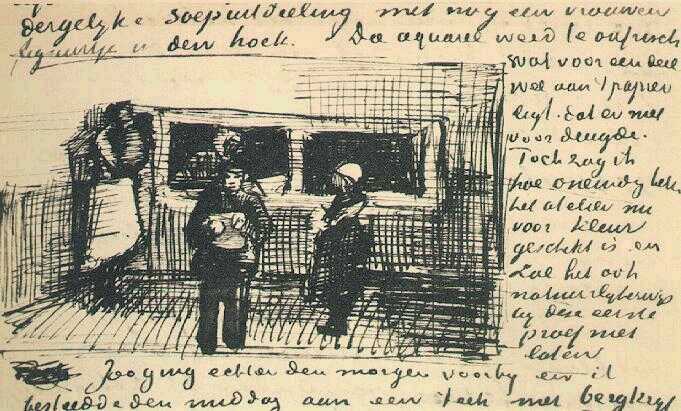 dergelyke soepuitdeeling met nog een vrouwen
figuurtje in den hoek. Die aquarel werd te onfrisch
wat voor een deel
wel aan 't papier
ligt. dat er niet
voor deugde.
Toch zag ik
hoe oneindig beter
het atelier nu
voor kleur
geschikt is en
zal het ook
natuurlyk
by deze eerste
proef niet
laten
Zoo ging echter den morgen voorby en ik
besteedde den middag aan een met bergkryt